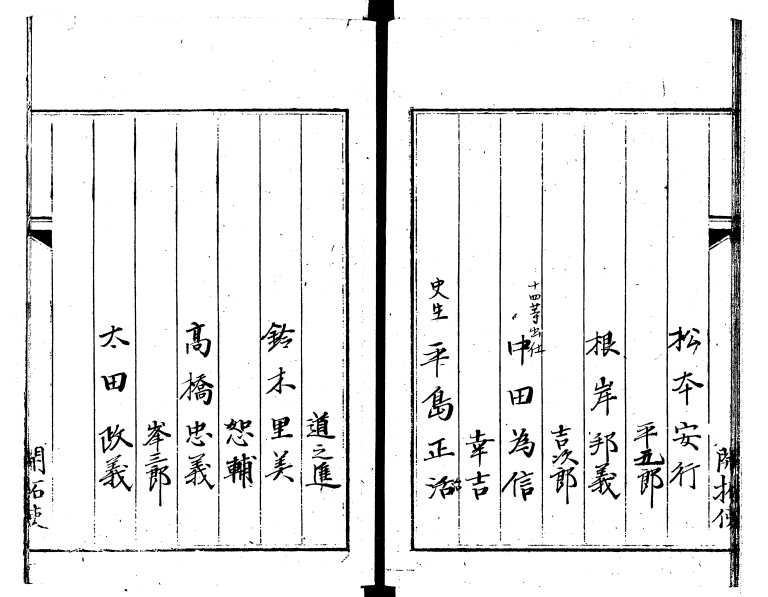 開拓使
松本安行
平五郎
根岸邦義
吉次郎
十四等出仕
中田為信
幸吉
史生 平島正治
道之進
鈴木里美
恕輔
高橋忠義
峯三郎
太田政義
開拓使